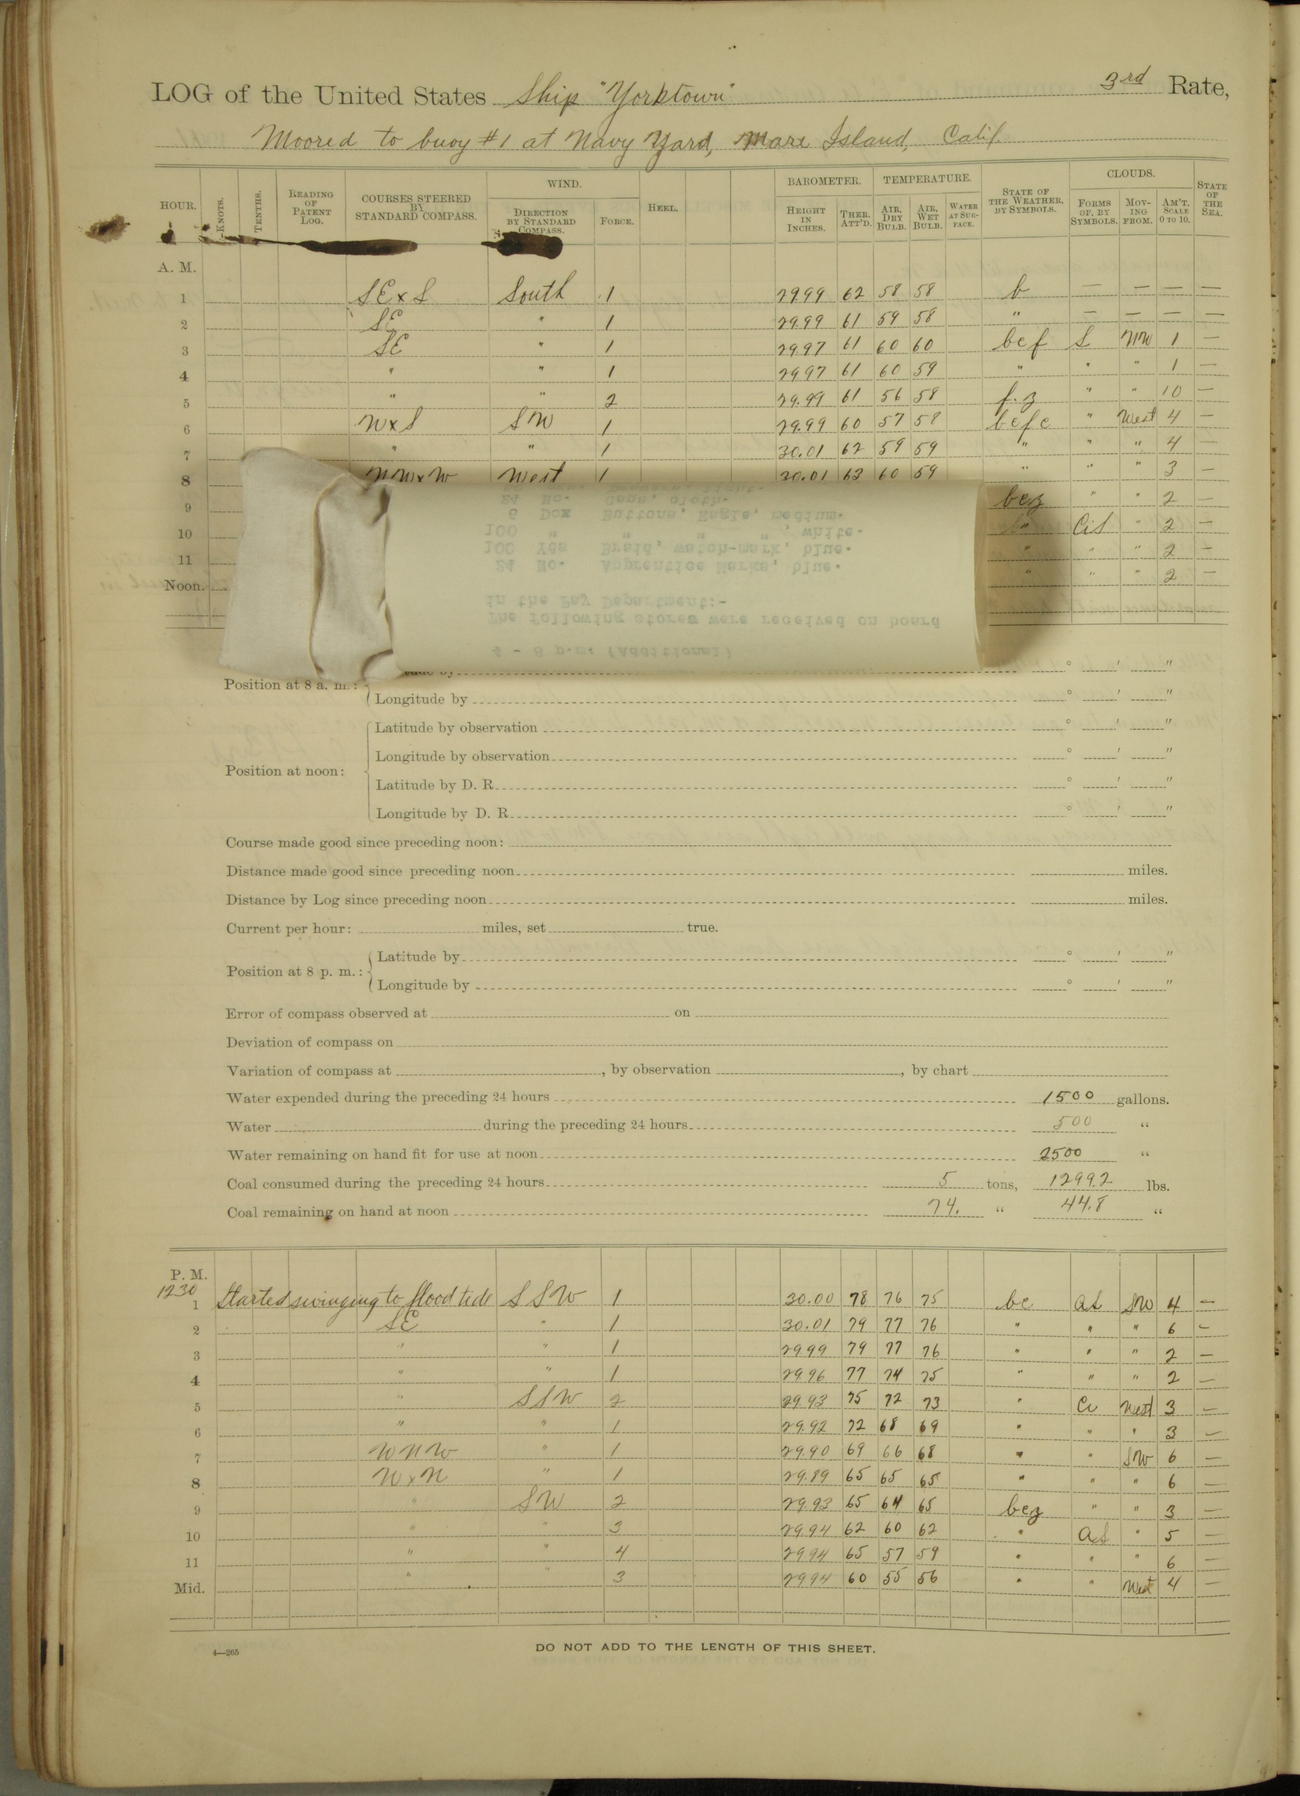 LOG of the United States Ship "Yorktown" 3rd Rate,
Moored to buoy #1 at Navy Yard, Mare Island, Calif.
HOUR. KNOTS. TENTHS. READING OF PATENT LOG. COURSES STEERED BY STANDARD COMPASS. WIND. DIRECTION BY STANDARD COMPASS. FORCE. HEEL. BAROMETER. HEIGHT IN INCHES. THER. ATT'D. TEMPERATURE. AIR, DRY BULB. AIR, WET BULB. WATER AT SURFACE. STATE OF THE WEATHER, BY SYMBOLS. CLOUDS. FORMS OF, BY SYMBOLS. MOVING FROM. AM'T. SCALE 0 TO 10. STATE OF THE SEA.
A. M.
1 SExS South 1 29.99 62 58 58 b — — — —
2 SE " 1 29.99 61 59 58 " — — — —
3 SE " 1 29.97 61 60 60 bcf S NW 1 —
4 " " 1 29.97 61 60 59 " " " 1 —
5 " " 2 29.99 61 56 58 f.z " " 10 —
6 WxS SW 1 29.99 60 57 58 " West 4 —
7 " " 1 30.01 62 59 59 " " " 4 —
8 NWxW West 1 30.01 63 60 59 " " " 3 —
9 bcz " " 2 —
10 " CiS " 2 —
11 " " " 2 —
Noon. " " " 2 —
24 No. Caps, cloth.
6 Doz Buttons, Eagle, medium.
100 " " " , white.
100 Yds Braid, watch-mark, blue.
24 No. Apprentice Marks, blue.
in the Pay Department:-
The following stores were received on board
4 - 8 p.m. (Additional)
Position at 8 a. m.:
Longitude by ° ' "
Position at noon: Latitude by observation ° ' "
Longitude by observation ° ' "
Latitude by D. R. ° ' "
Longitude by D. R. ° ' "
Course made good since preceding noon:
Distance made good since preceding noon miles.
Distance by Log since preceding noon miles.
Current per hour: miles, set true.
Position at 8 p. m.: Latitude by ° ' "
Longitude by ° ' "
Error of compass observed at on
Deviation of compass on
Variation of compass at , by observation , by chart
Water expended during the preceding 24 hours 1500 gallons.
Water during the preceding 24 hours 500 "
Water remaining on hand fit for use at noon 2500 "
Coal consumed during the preceding 24 hours 5 tons, 1299.2 lbs.
Coal remaining on hand at noon 74. " 44.8 "
P. M.
1230
1 Started swinging to flood tide SSW 1 30.00 78 76 75 bc AS SW 4 —
2 SE " 1 30.01 79 77 76 " " " 6 —
3 " " 1 29.99 79 77 76 " " " 2 —
4 " " 1 29.96 77 74 75 " " " 2 —
5 " SSW 2 29.93 75 72 73 " Ci West 3 —
6 " " 1 29.92 72 68 69 " " " 3 —
7 WNW " 1 29.90 69 66 68 " " SW 6 —
8 WxN " 1 29.89 65 65 65 " " " 6 —
9 " SW 2 29.93 65 64 65 bcz " " 3 —
10 " " 3 29.94 62 60 62 " AS " 5 —
11 " " 4 29.94 65 57 59 " " " 6 —
Mid. " " 3 29.94 60 55 56 " " West 4 —
4—265
DO NOT ADD TO THE LENGTH OF THIS SHEET.